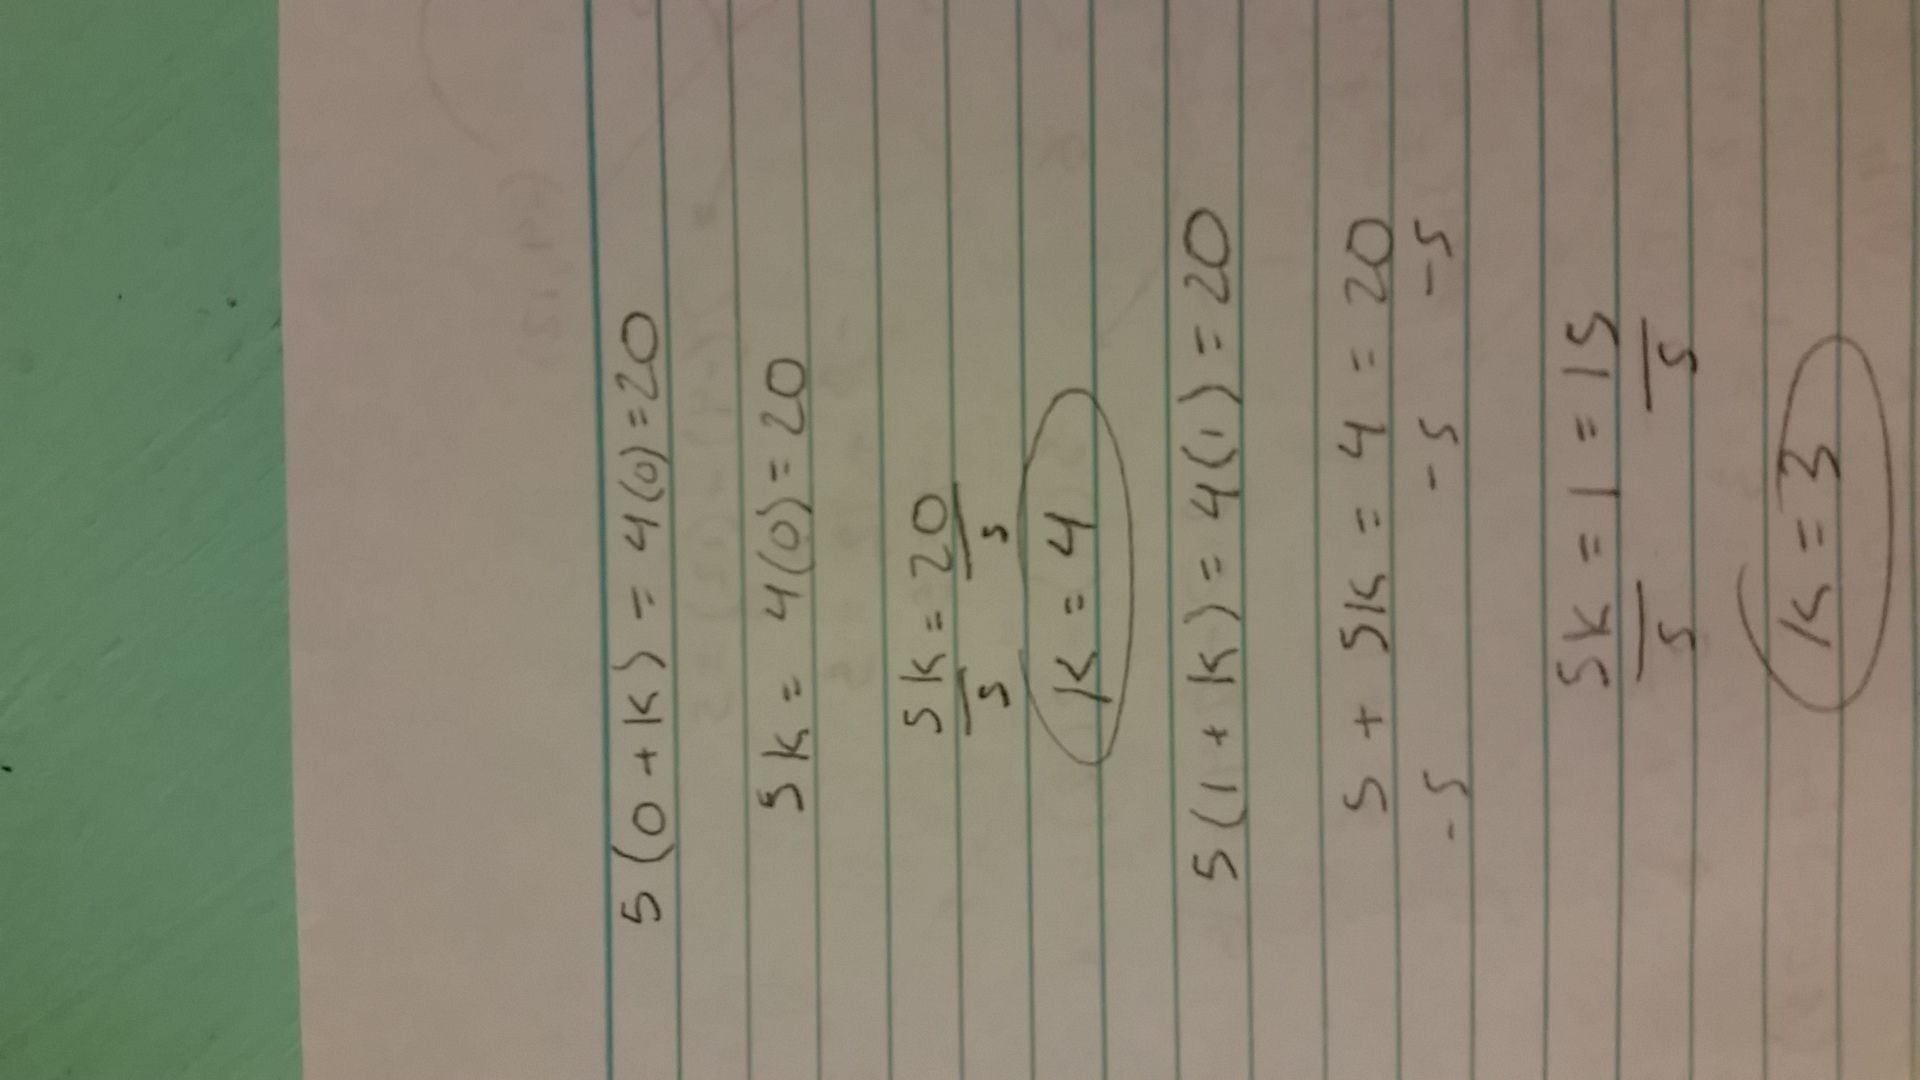 5(0+k) = 4(0)=20
5k = 4(0)=20
5k = 20
5 5
k = 4
5(1+k) = 4(1) = 20
5 + 5k = 4 = 20
-5 -5 -5
5k = 1 = 15
5 5
k = 3